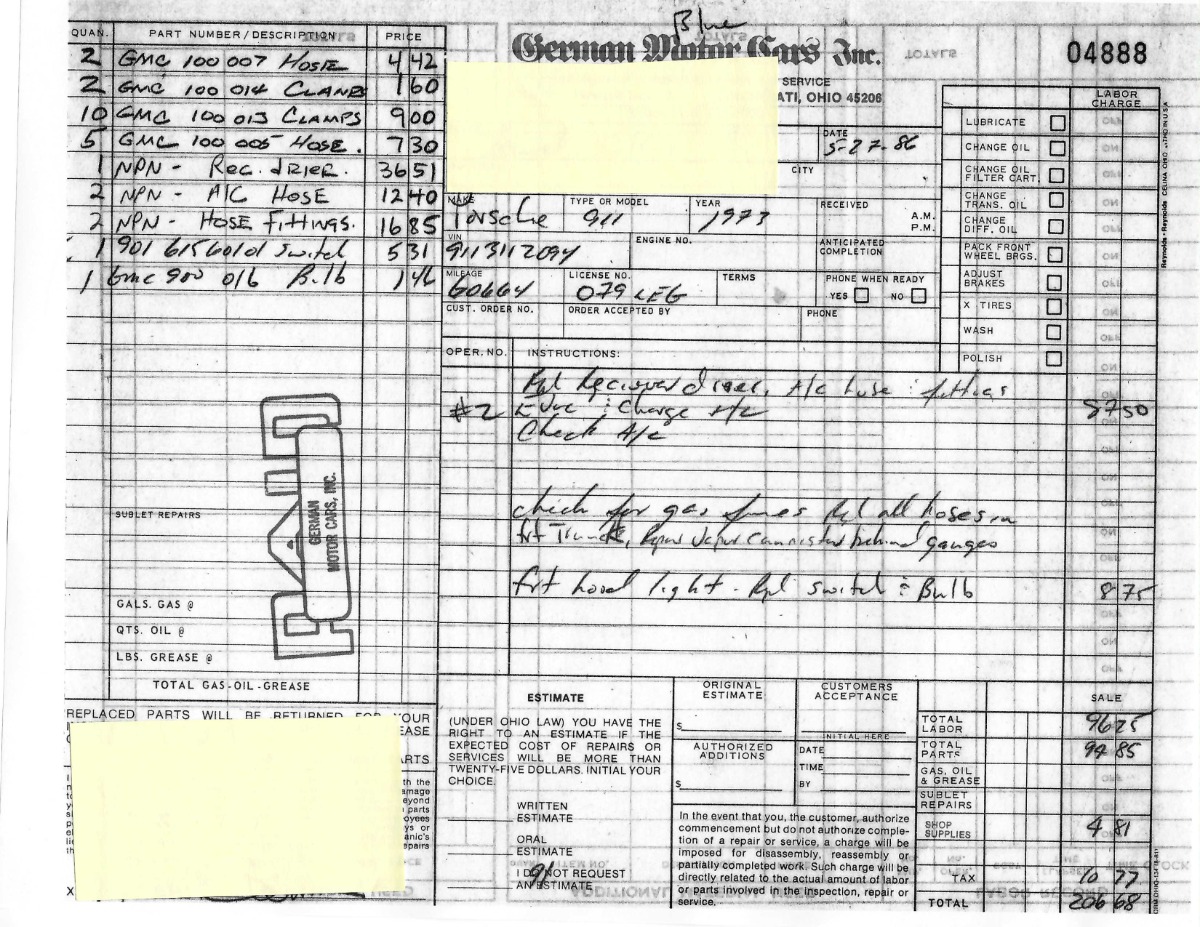 Blue
German Motor Cars Inc.
04888
SERVICE
ATI, OHIO 45206
QUAN. PART NUMBER/DESCRIPTION PRICE
2 GMC 100 007 HOSE 4 42
2 GMC 100 014 CLAMPS 1 60
10 GMC 100 013 CLAMPS 9 00
5 GMC 100 005 HOSE. 7 30
1 NPN - Rec. drier. 36 51
2 NPN - A/C HOSE 12 40
2 NPN - HOSE FITTINGS. 16 85
1 901 615 601 01 Switch 5 31
1 Gmc 900 016 Bulb 1 46
SUBLET REPAIRS
GERMAN
MOTOR CARS, INC.
PAID
GALS. GAS @
QTS. OIL @
LBS. GREASE @
TOTAL GAS-OIL-GREASE
DATE
5-27-86
CITY
MAKE TYPE OR MODEL YEAR RECEIVED
Porsche 911 1973
A.M.
P.M.
VIN ENGINE NO. ANTICIPATED
COMPLETION
9113112094
MILEAGE LICENSE NO. TERMS PHONE WHEN READY
60664 079 LEG YES NO
CUST. ORDER NO. ORDER ACCEPTED BY PHONE
LABOR
CHARGE
LUBRICATE
CHANGE OIL
CHANGE OIL
FILTER CART.
CHANGE
TRANS. OIL
CHANGE
DIFF. OIL
PACK FRONT
WHEEL BRGS.
ADJUST
BRAKES
X TIRES
WASH
POLISH
OPER. NO. INSTRUCTIONS:
Rpl Reciever drier, A/c hose : fittings
#2 Evac : Charge A/c 87 50
Check A/c
check for gas fumes Rpl all hoses in
frt Trunk, Repair Vapor Cannister behind gauges
frt hood light - Rpl switch : Bulb 8 75
REPLACED PARTS WILL BE RETURNED FOR YOUR
EASE
ARTS
th the
amage
eyond
parts
oyees
ys or
anic's
epairs
X
ESTIMATE
(UNDER OHIO LAW) YOU HAVE THE
RIGHT TO AN ESTIMATE IF THE
EXPECTED COST OF REPAIRS OR
SERVICES WILL BE MORE THAN
TWENTY-FIVE DOLLARS. INITIAL YOUR
CHOICE.
WRITTEN
ESTIMATE
ORAL
ESTIMATE
I DO NOT REQUEST
AN ESTIMATE
ORIGINAL
ESTIMATE
$
AUTHORIZED
ADDITIONS
$
CUSTOMERS
ACCEPTANCE
INITIAL HERE
DATE
TIME
BY
In the event that you, the customer, authorize
commencement but do not authorize comple-
tion of a repair or service, a charge will be
imposed for disassembly, reassembly or
partially completed work. Such charge will be
directly related to the actual amount of labor
or parts involved in the inspection, repair or
service.
SALE
TOTAL
LABOR 96 25
TOTAL
PARTS 94 85
GAS, OIL
& GREASE
SUBLET
REPAIRS
SHOP
SUPPLIES 4 81
TAX 10 77
TOTAL 206 68